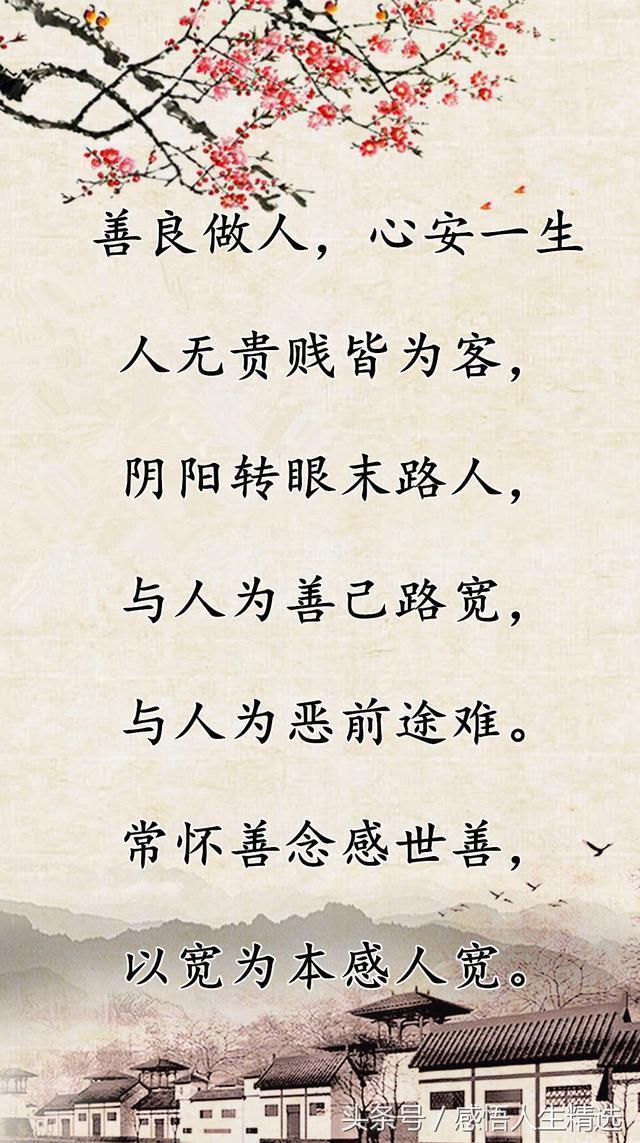 善良做人，心安一生
人无贵贱皆为客，
阴阳转眼末路人，
与人为善己路宽，
与人为恶前途难。
常怀善念感世善，
以宽为本感人宽。
头条号／感悟人生精选